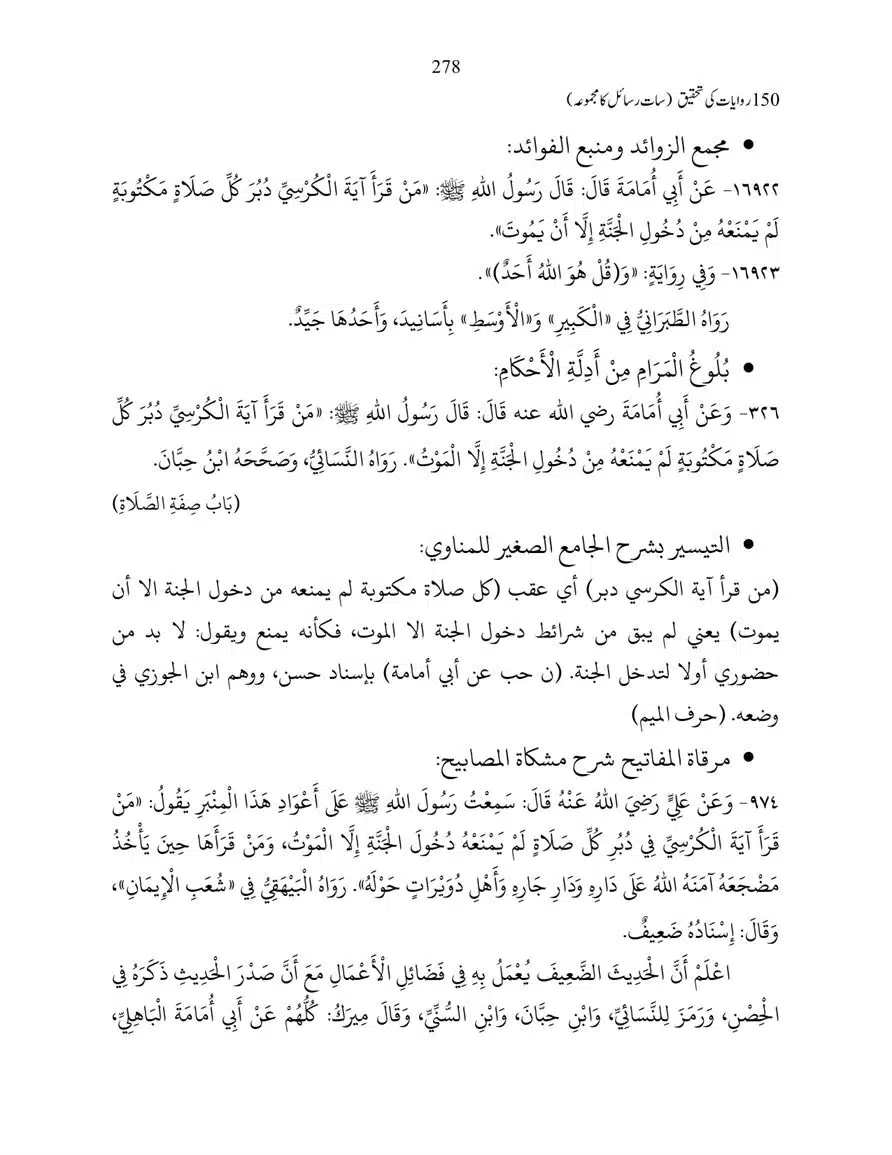 278
150 روایات کی تحقیق (سات رسائل کا مجموعہ)
• مجمع الزوائد ومنبع الفوائد:
١٦٩٢٢- عَنْ أَبِي أُمَامَةَ قَالَ: قَالَ رَسُولُ اللهِ ﷺ: «مَنْ قَرَأَ آيَةَ الْكُرْسِيِّ دُبُرَ كُلِّ صَلَاةٍ مَكْتُوبَةٍ
لَمْ يَمْنَعْهُ مِنْ دُخُولِ الْجَنَّةِ إِلَّا أَنْ يَمُوتَ».
١٦٩٢٣- وَفِي رِوَايَةٍ: «وَ(قُلْ هُوَ اللهُ أَحَدٌ)».
رَوَاهُ الطَّبَرَانِيُّ فِي «الْكَبِيرِ» وَ«الْأَوْسَطِ» بِأَسَانِيدَ، وَأَحَدُهَا جَيِّدٌ.
• بُلُوغُ الْمَرَامِ مِنْ أَدِلَّةِ الْأَحْكَامِ:
٣٢٦- وَعَنْ أَبِي أُمَامَةَ رضي الله عنه قَالَ: قَالَ رَسُولُ اللهِ ﷺ: «مَنْ قَرَأَ آيَةَ الْكُرْسِيِّ دُبُرَ كُلِّ
صَلَاةٍ مَكْتُوبَةٍ لَمْ يَمْنَعْهُ مِنْ دُخُولِ الْجَنَّةِ إِلَّا الْمَوْتُ». رَوَاهُ النَّسَائِيُّ، وَصَحَّحَهُ ابْنُ حِبَّانَ.
(بَابُ صِفَةِ الصَّلَاةِ)
• التيسير بشرح الجامع الصغير للمناوي:
(من قرأ آية الكرسي دبر) أي عقب (كل صلاة مكتوبة لم يمنعه من دخول الجنة الا أن
يموت) يعني لم يبق من شرائط دخول الجنة الا الموت، فكأنه يمنع ويقول: لا بد من
حضوري أولا لتدخل الجنة. (ن حب عن أبي أمامة) بإسناد حسن، ووهم ابن الجوزي في
وضعه. (حرف الميم)
• مرقاة المفاتيح شرح مشكاة المصابيح:
٩٧٤- وَعَنْ عَلِيٍّ رَضِيَ اللهُ عَنْهُ قَالَ: سَمِعْتُ رَسُولَ اللهِ ﷺ عَلَى أَعْوَادِ هَذَا الْمِنْبَرِ يَقُولُ: «مَنْ
قَرَأَ آيَةَ الْكُرْسِيِّ فِي دُبُرِ كُلِّ صَلَاةٍ لَمْ يَمْنَعْهُ دُخُولَ الْجَنَّةِ إِلَّا الْمَوْتُ، وَمَنْ قَرَأَهَا حِينَ يَأْخُذُ
مَضْجَعَهُ آمَنَهُ اللهُ عَلَى دَارِهِ وَدَارِ جَارِهِ وَأَهْلِ دُوَيْرَاتٍ حَوْلَهُ». رَوَاهُ الْبَيْهَقِيُّ فِي «شُعَبِ الْإِيمَانِ»،
وَقَالَ: إِسْنَادُهُ ضَعِيفٌ.
اعْلَمْ أَنَّ الْحَدِيثَ الضَّعِيفَ يُعْمَلُ بِهِ فِي فَضَائِلِ الْأَعْمَالِ مَعَ أَنَّ صَدْرَ الْحَدِيثِ ذَكَرَهُ فِي
الْحِصْنِ، وَرَمَزَ لِلنَّسَائِيِّ، وَابْنِ حِبَّانَ، وَابْنِ السُّنِّيِّ، وَقَالَ مِيرَكُ: كُلُّهُمْ عَنْ أَبِي أُمَامَةَ الْبَاهِلِيِّ،